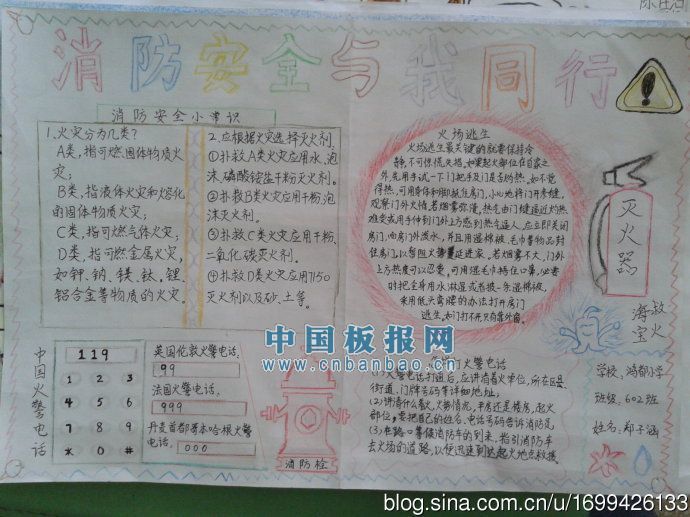 消防安全与我同行
消防安全小常识
1.火灾分为几类?
A类,指可燃固体物质火
灾;
B类,指液体火灾和熔化
的固体物质火灾;
C类,指可燃气体火灾;
D类,指可燃金属火灾,
如钾.钠.镁.钛.锂.
铝合金等物质的火灾.
2.应根据火灾选择灭火剂.
①扑救A类火灾应用水,泡
沫.磷酸铵生干粉灭火剂.
②扑救B类火灾应用干粉,泡
沫灭火剂.
③扑救C类火灾应用干粉.
二氧化碳灭火剂.
④扑救D类火灾应用7150
灭火剂以及砂.土等.
火场逃生
火场逃生最关键的就要保持冷
静,不可惊慌失措.如要起火部位在自家之
外,先用手试一下门把手及门是否灼热.如不觉
得热,可用身体和脚抵住房门,小心地将门开条缝,
观察门外火情.若烟雾弥漫,热气由门缝逼近灼热
难受或用手伸到门外上方感到热气逼人,应立即关闭
房门,向房门外泼水,并且用湿棉被、毛巾等物品封
住房门,以暂阻火势蔓延进家,若烟雾不大,门外
上方热度可以忍受,可用湿毛巾捂住口鼻,必要
时把全身用水淋湿或者披一张湿棉被,
采用低头弯腰的办法打开房门
逃生,大门打不开只有靠外窗.
灭火器
海宝救火
中国板报网
www.cnbanbao.cn
中国火警电话
119
1 2 3
4 5 6
7 8 9
* 0 #
英国伦敦火警电话.
99
法国火警电话.
999
丹麦首都哥本哈根火警
电话.
000
消防栓
火警电话
火警电话打通后,应讲清着火单位,所在区县
街道、门牌号码等详细地址;
(2)讲清什么着火,火势情况,平房还是楼房,起火
部位,要把自己的姓名、电话号码告诉消防队;
(3)在路口等候消防车的到来,指引消防车
去火场的道路,以便迅速到达起火地点救援
学校:鸿都小学
班级:602班
姓名:郑子涵
blog.sina.com.cn/u/1699426133